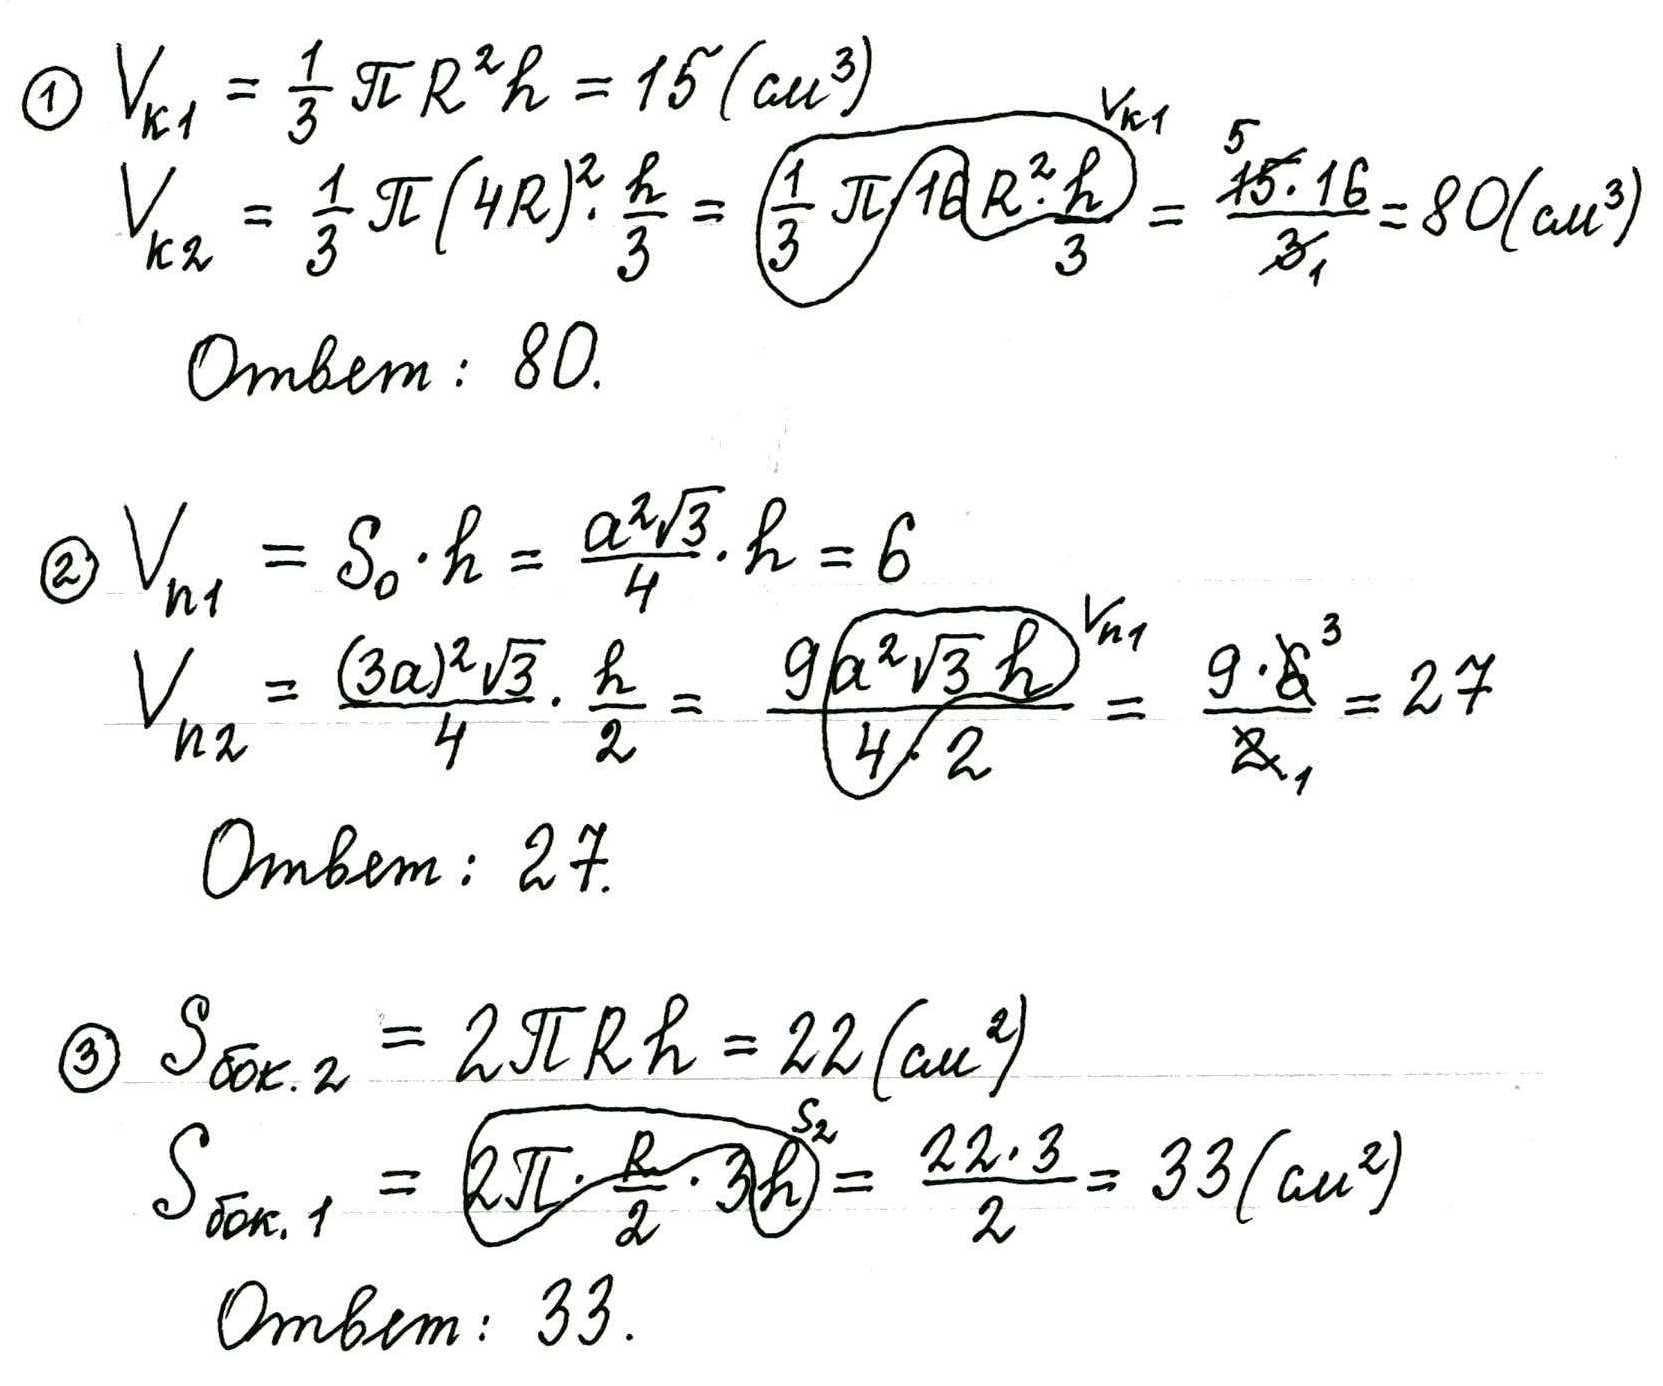 ① Vк1 = 1/3 πR²h = 15 (см³)
Vк2 = 1/3 π(4R)² · h/3 = 1/3 π · 16 R² · h/3 = 15 · 16/3 = 80 (см³)
Vк1
5
1
Ответ: 80.
② Vп1 = S₀ · h = a²√3/4 · h = 6
Vп2 = (3a)²√3/4 · h/2 = 9a²√3 h/4 · 2 = 9 · 6/2 = 27
Vп1
3
1
Ответ: 27.
③ Sбок.2 = 2πRh = 22 (см²)
Sбок.1 = 2π · R/2 · 3h = 22 · 3/2 = 33 (см²)
S₂
Ответ: 33.